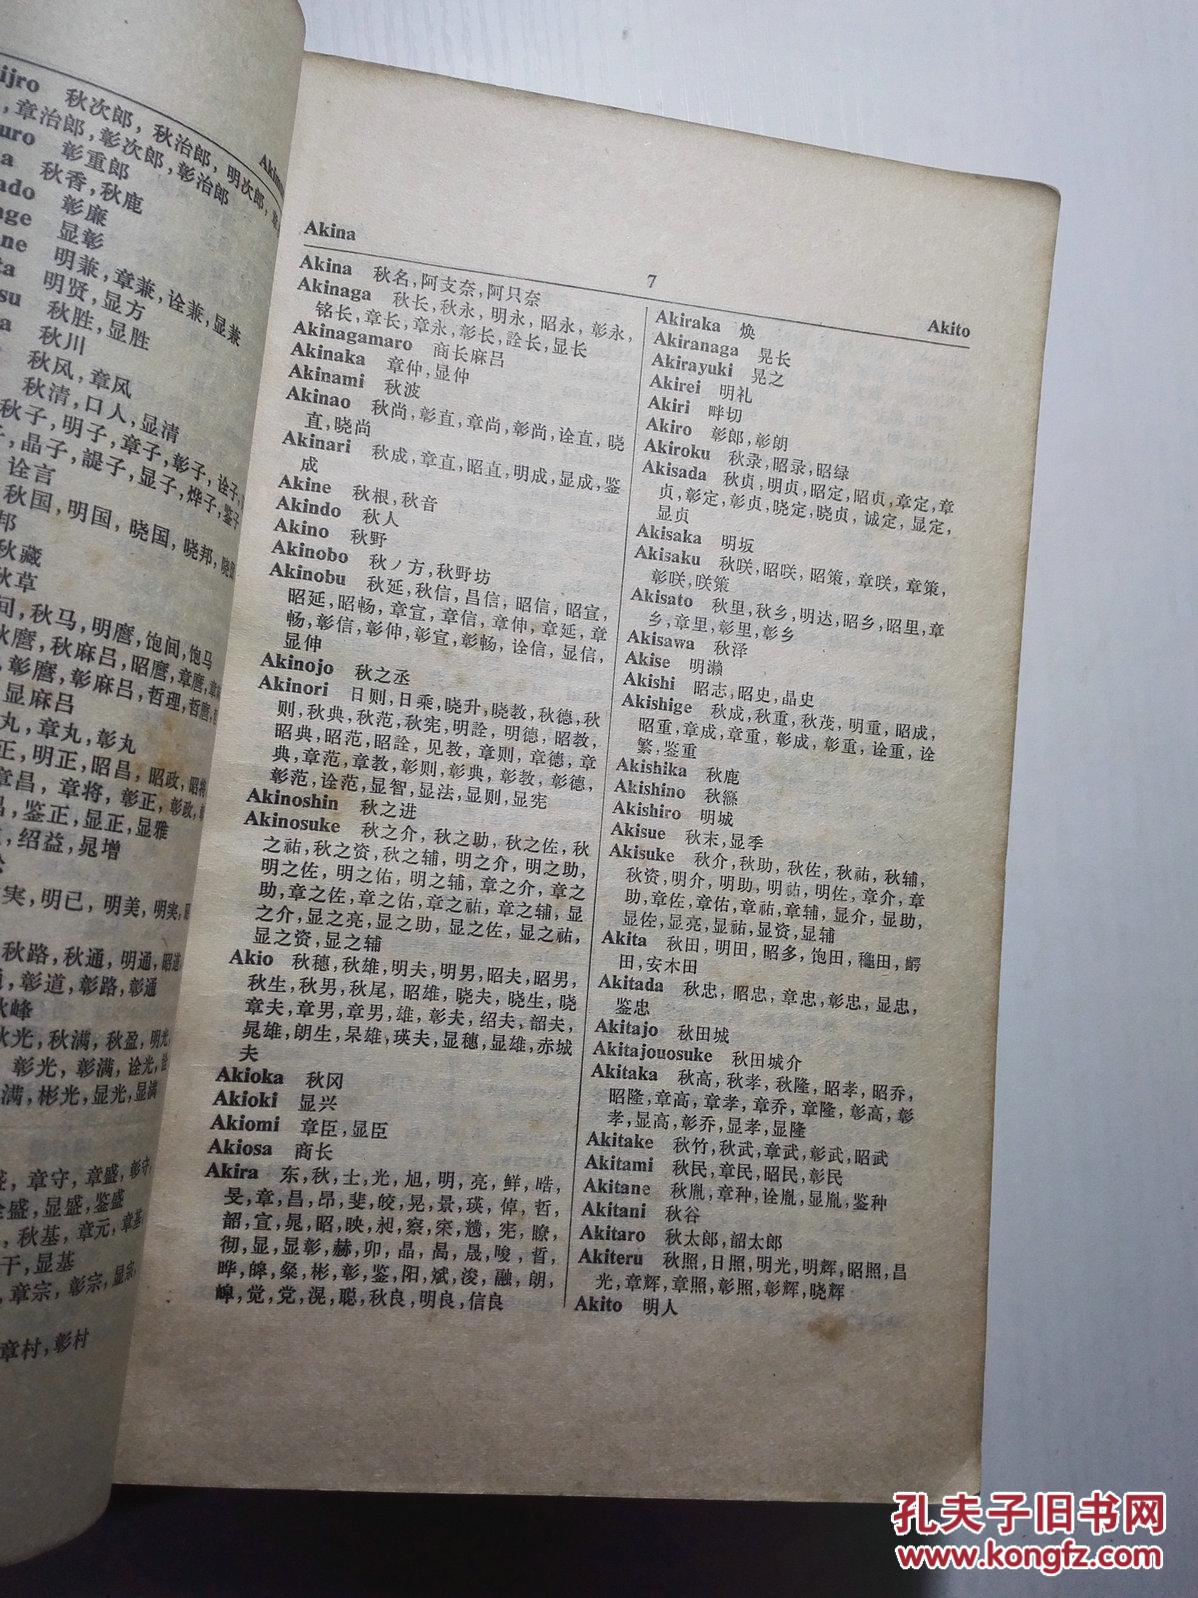 ijro 秋次郎，秋治郎，明次郎，
，章治郎，彰次郎，彰治郎
uro 彰重郎
a 秋香，秋鹿
ado 彰廉
age 显彰
ne 明兼，章兼，诠兼，显兼
ta 明贤，显方
su 秋胜，显胜
a 秋川
秋风，章风
秋清，口人，显清
秋子，明子，章子，彰子，诠子，
，晶子，諟子，显子，烨子，鉴子
诠言
秋国，明国，晓国，晓邦，
邦
秋藏
秋草
间，秋马，明麿，饱间，饱马
秋麿，秋麻吕，昭麿，章麿，
，彰麿，彰麻吕，哲理，哲麿，
显麻吕
丸，章丸，彰丸
正，明正，昭昌，昭政，昭将
章昌，章将，彰正，彰政，
昌，鉴正，显正，显雅
，绍益，晁增
实，明已，明美，明实，
秋路，秋通，明通，昭道
，彰道，彰路，彰通
秋峰
秋光，秋满，秋盈，明光，
彰光，彰满，诠光，诠
满，彬光，显光，显满
，章守，章盛，彰守
盛，显盛，鉴盛
，秋基，章元，章基
干，显基
，章宗，彰宗，显宗，
章村，彰村
Akina
7
Akito
Akina 秋名，阿支奈，阿只奈
Akinaga 秋长，秋永，明永，昭永，彰永，
铭长，章长，章永，彰长，詮长，显长
Akinagamaro 商长麻吕
Akinaka 章仲，显仲
Akinami 秋波
Akinao 秋尚，彰直，章尚，彰尚，诠直，晓
直，晓尚
Akinari 秋成，章直，昭直，明成，显成，鉴
成
Akine 秋根，秋音
Akindo 秋人
Akino 秋野
Akinobo 秋ノ方，秋野坊
Akinobu 秋延，秋信，昌信，昭信，昭宣，
昭延，昭畅，章宣，章信，章伸，章延，章
畅，彰信，彰伸，彰宣，彰畅，诠信，显信，
显伸
Akinojo 秋之丞
Akinori 日则，日乘，晓升，晓教，秋德，秋
则，秋典，秋范，秋宪，明詮，明德，昭教，
昭典，昭范，昭詮，见教，章则，章德，章
典，章范，章教，彰则，彰典，彰教，彰德，
彰范，诠范，显智，显法，显则，显宪
Akinoshin 秋之进
Akinosuke 秋之介，秋之助，秋之佐，秋
之祐，秋之资，秋之辅，明之介，明之助，
明之佐，明之佑，明之辅，章之介，章之
助，章之佐，章之佑，章之祐，章之辅，显
之介，显之亮，显之助，显之佐，显之祐，
显之资，显之辅
Akio 秋穗，秋雄，明夫，明男，昭夫，昭男，
秋生，秋男，秋尾，昭雄，晓夫，晓生，晓
章夫，章男，章男，雄，彰夫，绍夫，韶夫，
晁雄，朗生，杲雄，瑛夫，显穗，显雄，赤城
夫
Akioka 秋冈
Akioki 显兴
Akiomi 章臣，显臣
Akiosa 商长
Akira 东，秋，士，光，旭，明，亮，鲜，晧，
旻，章，昌，昂，斐，皎，晃，景，瑛，倬，哲，
韶，宣，晁，昭，映，昶，察，宷，，宪，瞭，
彻，显，显彰，赫，卯，晶，暠，晟，晙，晢，
晔，皞，粲，彬，彰，鉴，阳，斌，浚，融，朗，
皞，觉，党，滉，聪，秋良，明良，信良
Akiraka 焕
Akiranaga 晃长
Akirayuki 晃之
Akirei 明礼
Akiri 畔切
Akiro 彰郎，彰朗
Akiroku 秋录，昭录，昭绿
Akisada 秋贞，明贞，昭定，昭贞，章定，章
贞，彰定，彰贞，晓定，晓贞，诚定，显定，
显贞
Akisaka 明坂
Akisaku 秋咲，昭咲，昭策，章咲，章策，
彰咲，咲策
Akisato 秋里，秋乡，明达，昭乡，昭里，章
乡，章里，彰里，彰乡
Akisawa 秋泽
Akise 明濑
Akishi 昭志，昭史，晶史
Akishige 秋成，秋重，秋茂，明重，昭成，
昭重，章成，章重，彰成，彰重，诠重，诠
繁，鉴重
Akishika 秋鹿
Akishino 秋篠
Akishiro 明城
Akisue 秋末，显季
Akisuke 秋介，秋助，秋佐，秋祐，秋辅，
秋资，明介，明助，明祐，明佐，章介，章
助，章佐，章佑，章祐，章辅，显介，显助，
显佐，显亮，显祐，显资，显辅
Akita 秋田，明田，昭多，饱田，龝田，龉
田，安木田
Akitada 秋忠，昭忠，章忠，彰忠，显忠，
鉴忠
Akitajo 秋田城
Akitajouosuke 秋田城介
Akitaka 秋高，秋孝，秋隆，昭孝，昭乔，
昭隆，章高，章孝，章乔，章隆，彰高，彰
孝，显高，彰乔，显孝，显隆
Akitake 秋竹，秋武，章武，彰武，昭武
Akitami 秋民，章民，昭民，彰民
Akitane 秋胤，章种，诠胤，显胤，鉴种
Akitani 秋谷
Akitaro 秋太郎，韶太郎
Akiteru 秋照，日照，明光，明辉，昭照，昌
光，章辉，章照，彰照，彰辉，晓辉
Akito 明人
孔夫子旧书网
www.kongfz.com